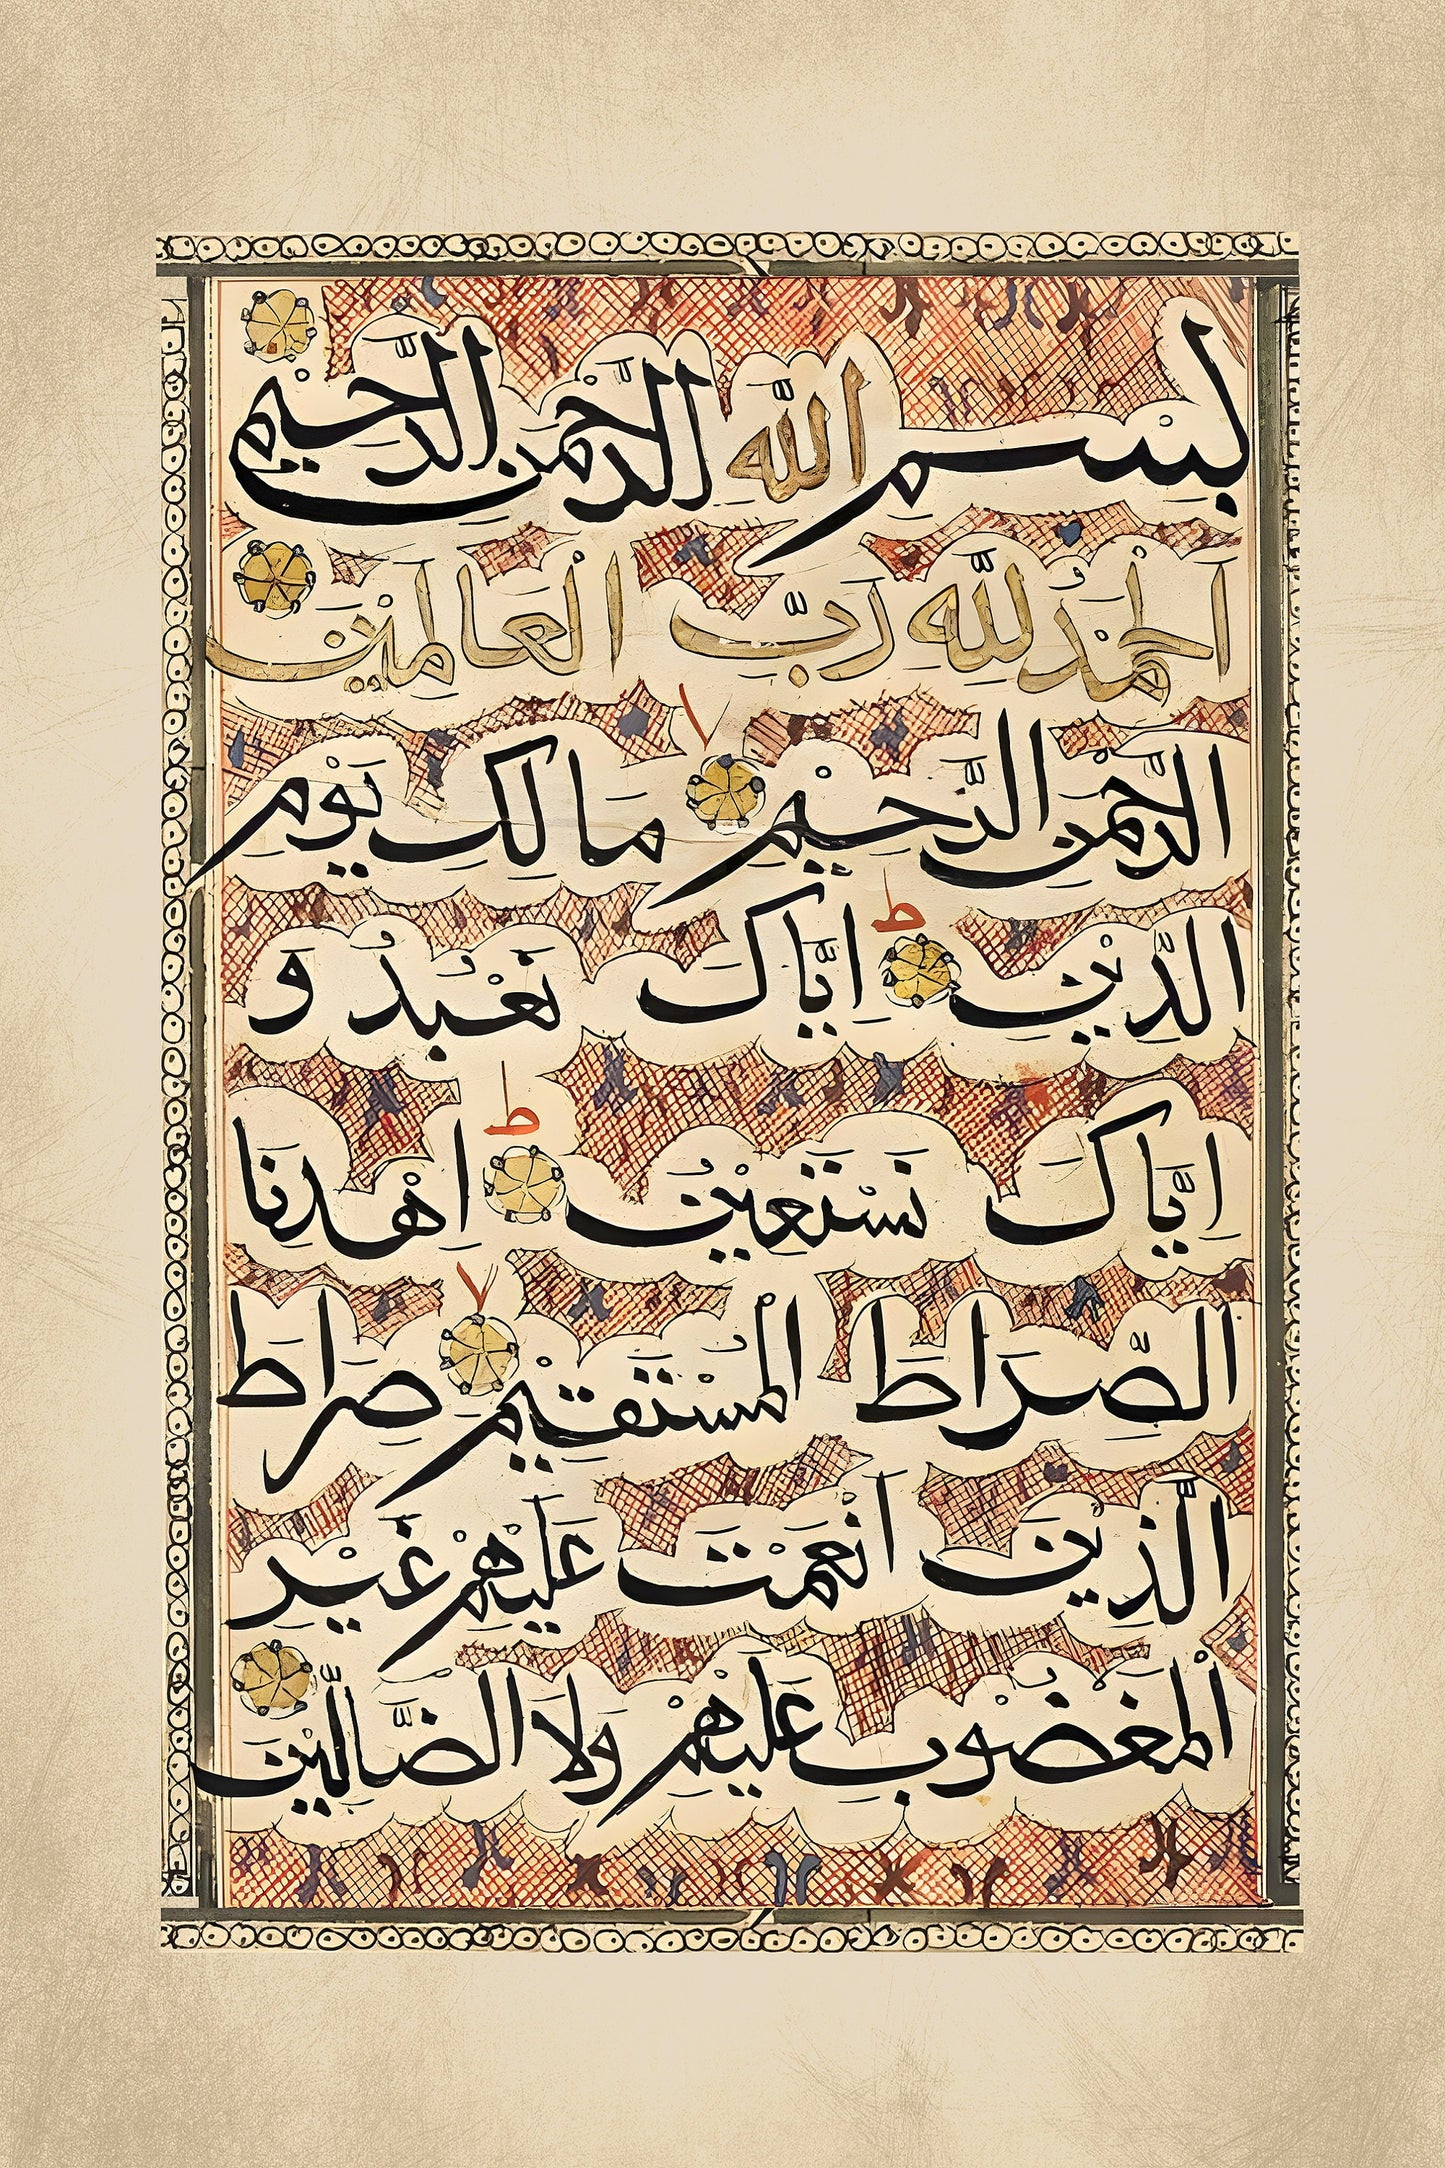 بِسْمِ اللّٰهِ الرَّحْمٰنِ الرَّحِيْمِ
اَلْحَمْدُ لِلّٰهِ رَبِّ الْعَالَمِيْنَ
الرَّحْمٰنِ الرَّحِيْمِ لا مَالِكِ يَوْمِ
الدِّيْنِ ط اِيَّاكَ نَعْبُدُ وَ
اِيَّاكَ نَسْتَعِيْنُ ط اِهْدِنَا
الصِّرَاطَ الْمُسْتَقِيْمَ لا صِرَاطَ
الَّذِيْنَ اَنْعَمْتَ عَلَيْهِمْ غَيْرِ
الْمَغْضُوْبِ عَلَيْهِمْ وَلَا الضَّالِّيْنَ